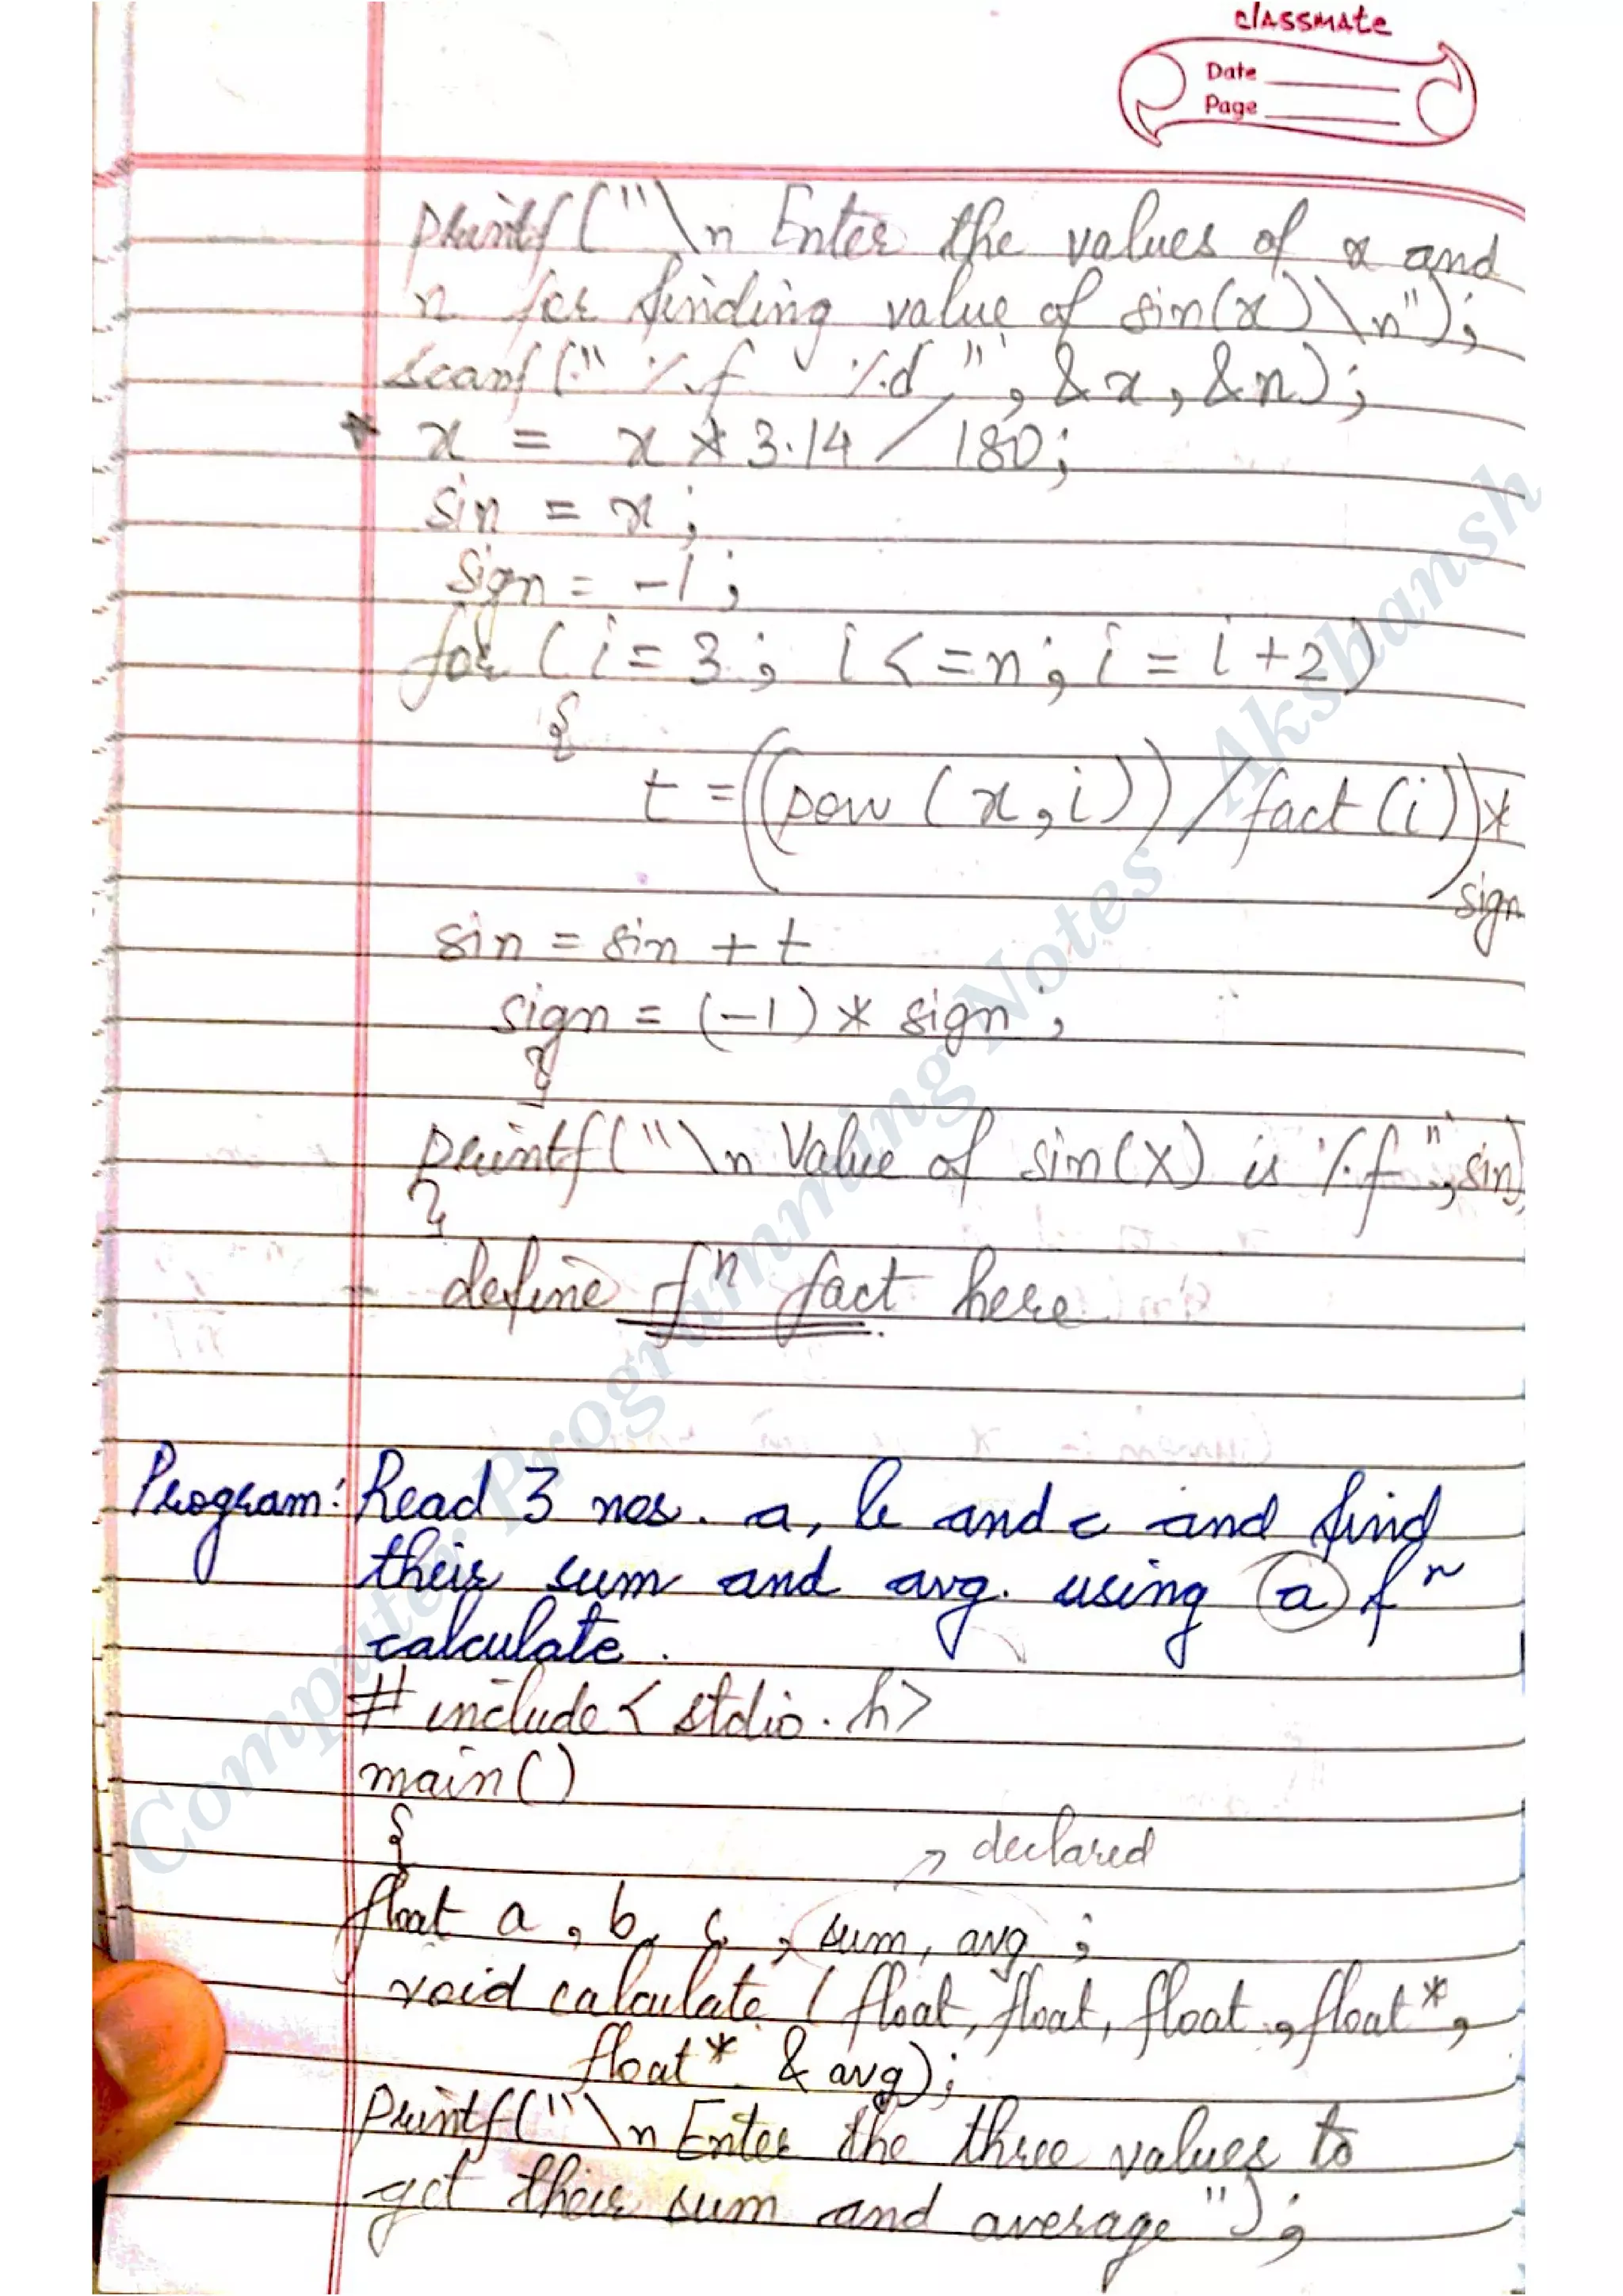 classmate
Date
Page
printf("\n Enter the values of x and
n for finding value of sin(x)\n");
scanf("%f %d", &x, &n);
* x = x * 3.14 / 180;
sin = x;
sign = -1;
for (i = 3; i <= n; i = i + 2)
{
t = ((pow(x, i)) / fact(i)) *
sign
sin = sin + t
sign = (-1) * sign;
}
printf("\n Value of sin(X) is %f", sin)
}
define fⁿ fact here
Program: Read 3 nos. a, b and c and find
their sum and avg. using a fⁿ
calculate.
# include < stdio.h>
main()
{
→ declared
float a, b, c, sum, avg;
void calculate (float, float, float, float*,
float* & avg);
printf("\n Enter the three values to
get their sum and average");
Computer Programming Notes - Akshansh